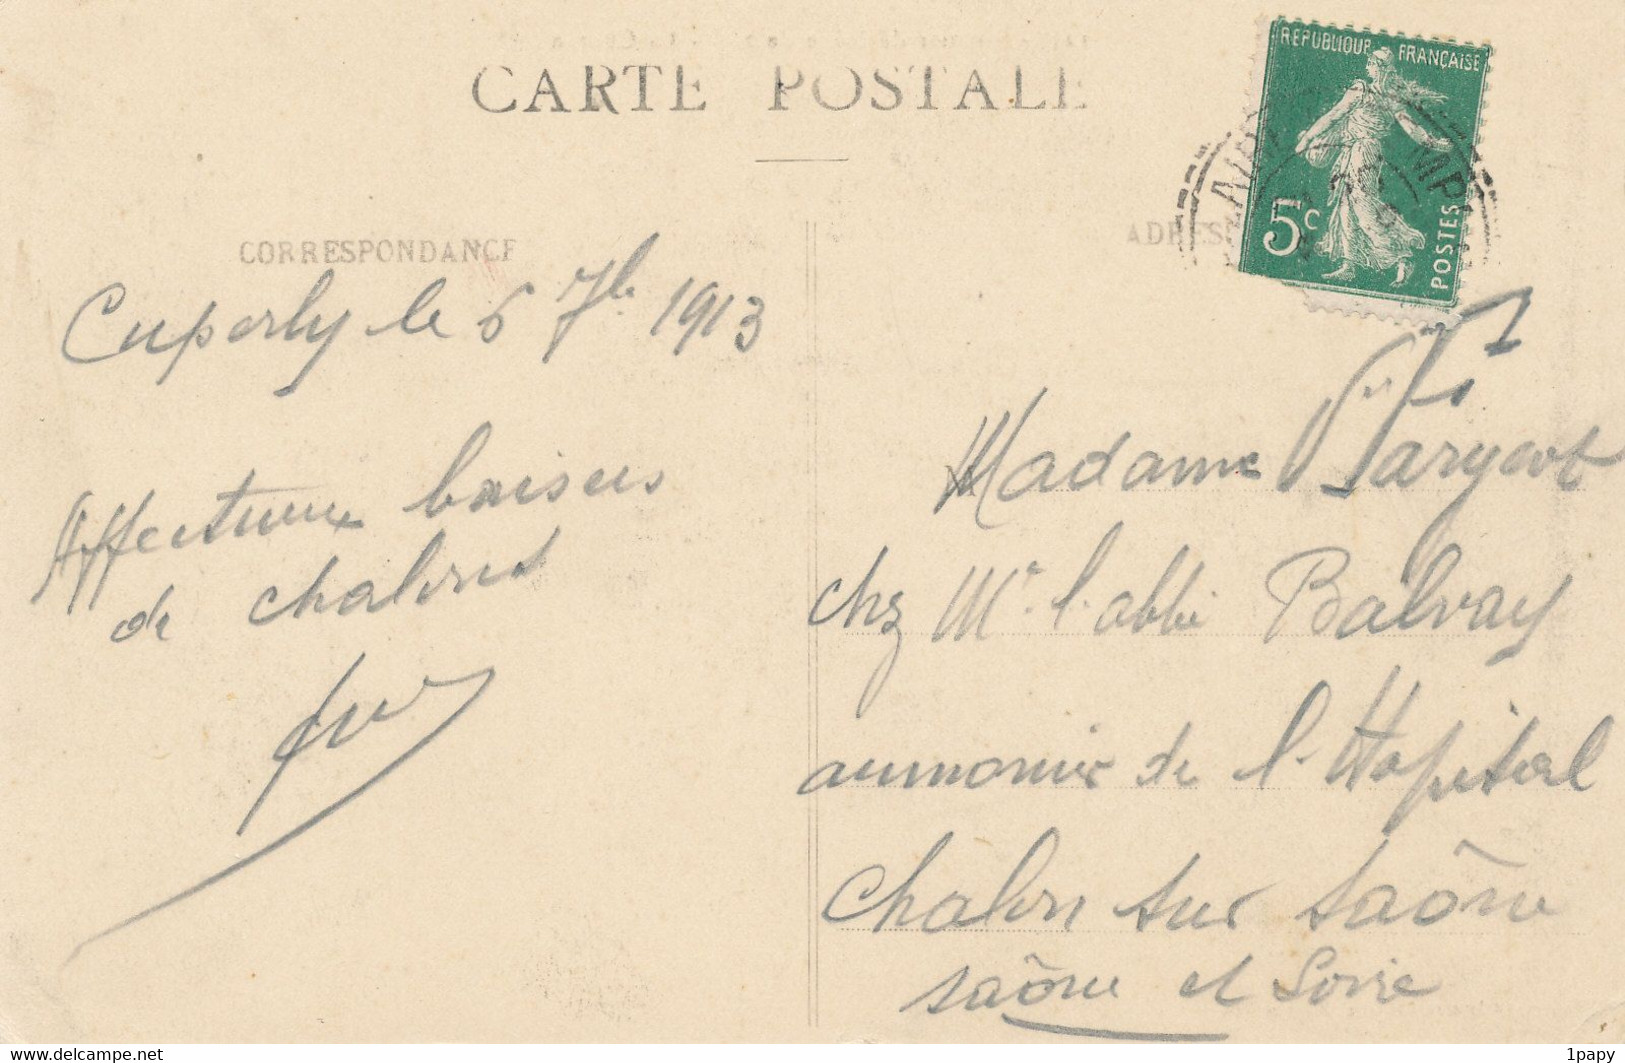 CARTE POSTALE
REPUBLIQUE FRANÇAISE
5c
POSTES
CORRESPONDANCE
Cuperly le 6 7bre 1913
Affectueux baisers
de
Madame
chez Mr l'abbé Balvay
aumonier de l'Hopital
Chalon sur Saône
Saône et Loire
www.delcampe.net
1papy